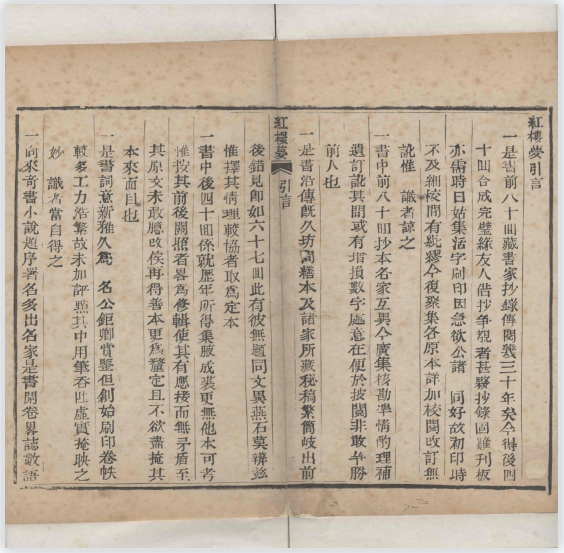 紅樓夢引言
一是書前八十回藏書家抄錄傳閱幾三十年矣今得後四
十回合成完璧緣友人借抄爭覩者甚夥抄錄固難刊板
亦需時日姑集活字刷印因急欲公諸 同好故初印時
不及細校間有紕繆今復聚集各原本詳加校閱改訂無
訛惟 識者諒之
一書中前八十回抄本各家互異今廣集核勘準情酌理補
遺訂訛其間或有增損數字處意在便於披閱非敢爭勝
前人也
一是書沿傳既久坊間繕本及諸家所藏秘稿繁簡歧出前
紅樓夢 引言
後錯見即如六十七回此有彼無題同文異燕石莫辨茲
惟擇其情理較協者取為定本
一書中後四十回係就歷年所得集腋成裘更無他本可考
惟按其前後關照者畧為修輯使其有應接而無矛盾至
其原文未敢臆改俟再得善本更為釐定且不欲盡掩其
本來面目也
一是書詞意新雅久為 名公鉅卿賞鑒但創始刷印卷帙
較多工力浩繁故未加評點其中用筆吞吐虛實掩映之
妙 識者當自得之
一向來奇書小說題序署名多出名家是書開卷畧誌數語